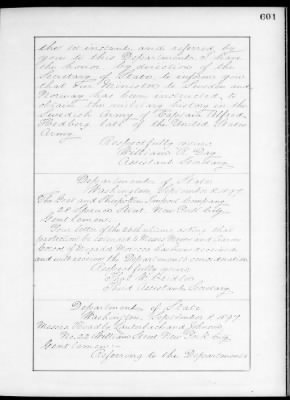 601
the 1st instant, and referred by
you to this Department, I have
the honor, by direction of the
Secretary of State, to inform you
that our Minister to Sweden and
Norway has been instructed to
obtain the military history in the
Swedish Army of Captain Alfred
Hedberg late of the United States
Army.
Respectfully yours,
William R. Day
Assistant Secretary.
Department of State
Washington, September 8, 1897.
The and Import Company,
28 Spruce Street, New York City.
Gentlemen:
Your letter of the asking that
protection be to Messrs and
of Mogador, Morocco, has been received
and will receive the Department's consideration.
Respectfully yours,
Third Assistant Secretary.
Department of State
Washington, September 8, 1897.
Messrs and Johnson,
No. 22 William Street, New York City.
Gentlemen:
Referring to the Department's